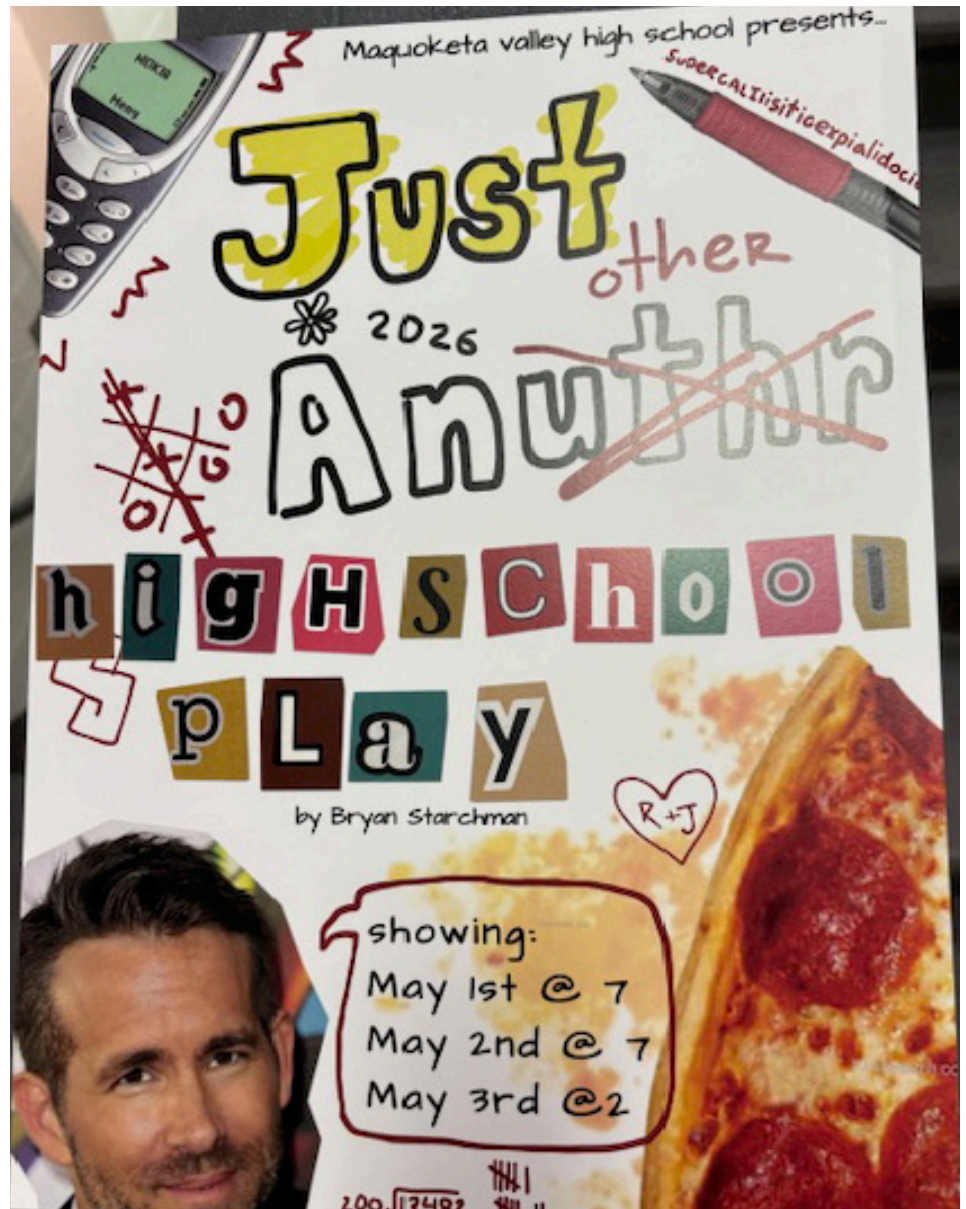 Maquoketa valley high school presents...
NOKIA
Menu
Just
other
2026
Anuthr
higH SChool
pLay
by Bryan Starchman
R+J
showing:
May 1st @ 7
May 2nd @ 7
May 3rd @2